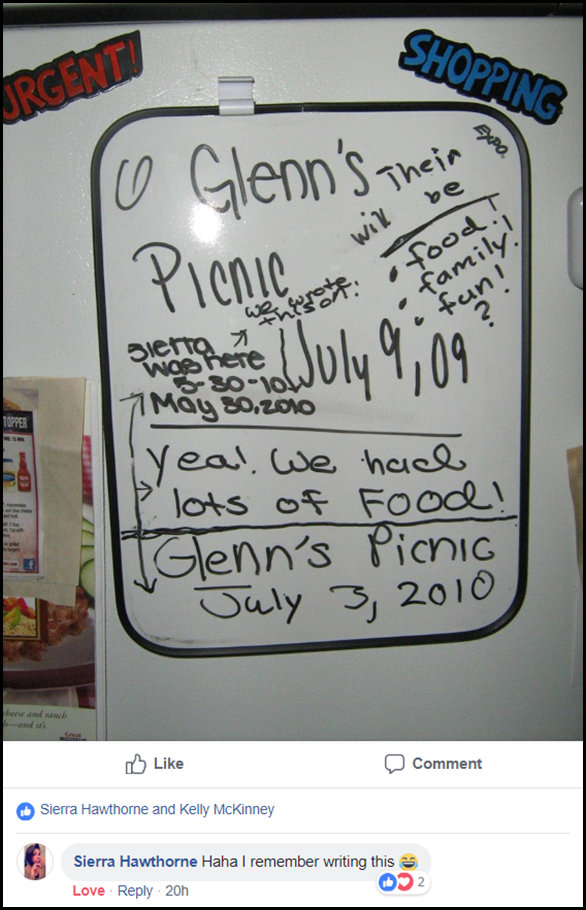 URGENT!
SHOPPING
EXPO
Glenn's Their
will be
Picnic
• food!
• family!
• fun!
?
we wrote
this on!
July 9, 09
Sierra
was here
5-30-10
May 30, 2010
Yea! We had
lots of Food!
Glenn's Picnic
July 3, 2010
TOPPER
cheese and ranch
and it's
Great
Like
Comment
Sierra Hawthorne and Kelly McKinney
Sierra Hawthorne Haha I remember writing this 😂
2
Love · Reply · 20h